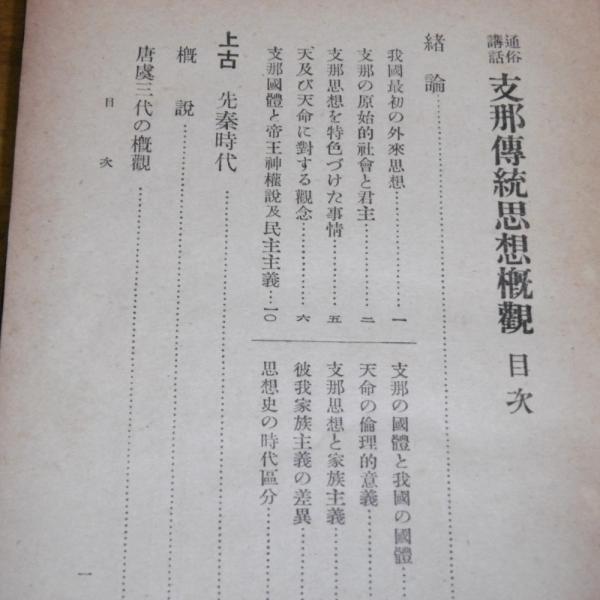 通俗講話 支那傳統思想概觀 目次
緒論
我國最初の外來思想……一
支那の原始的社會と君主……二
支那思想を特色づけた事情……五
天及び天命に對する觀念……六
支那國體と帝王神權說及民主主義…一〇
支那の國體と我國の國體
天命の倫理的意義
支那思想と家族主義
彼我家族主義の差異
思想史の時代區分
上古 先秦時代
概說
唐虞三代の概觀
目次
一